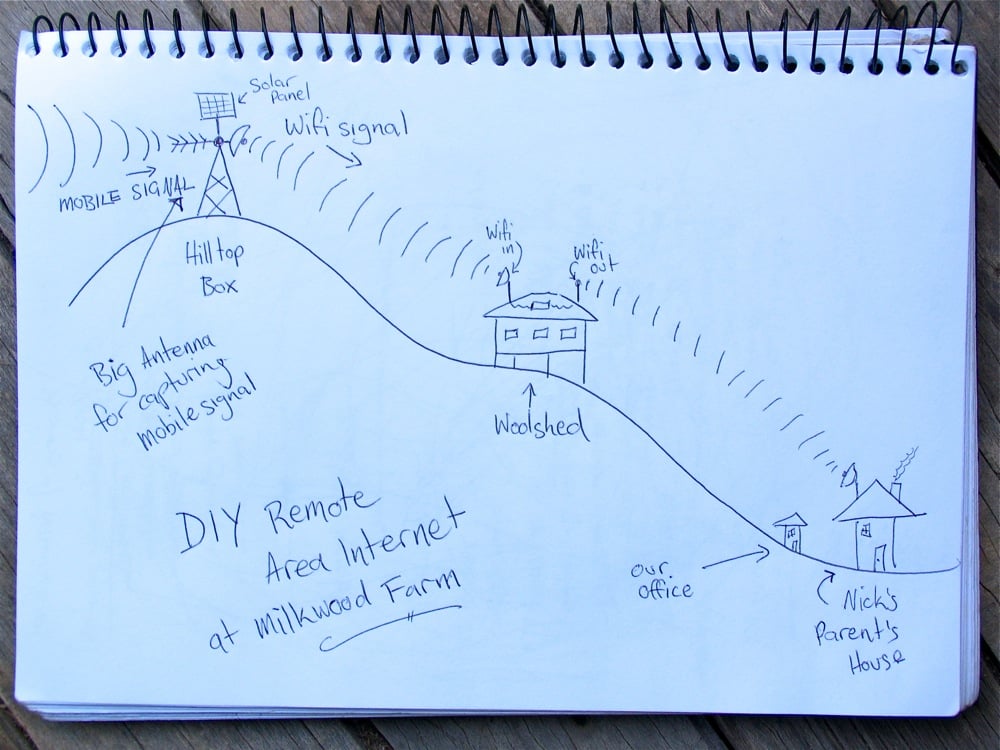 Solar
Panel
Wifi signal
MOBILE SIGNAL
Hilltop
Box
Big Antenna
for capturing
mobile signal
Wifi
in
Wifi
out
Woolshed
DIY Remote
Area Internet
at Milkwood Farm
our
office
Nick's
Parent's
House